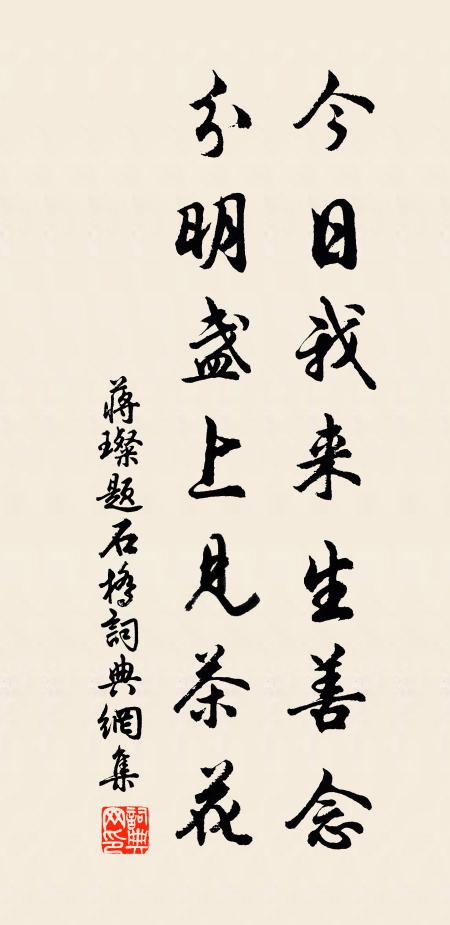 今日我来生善念
分明盏上见茶花
蒋璨题石桥詞典網集
詞典网印